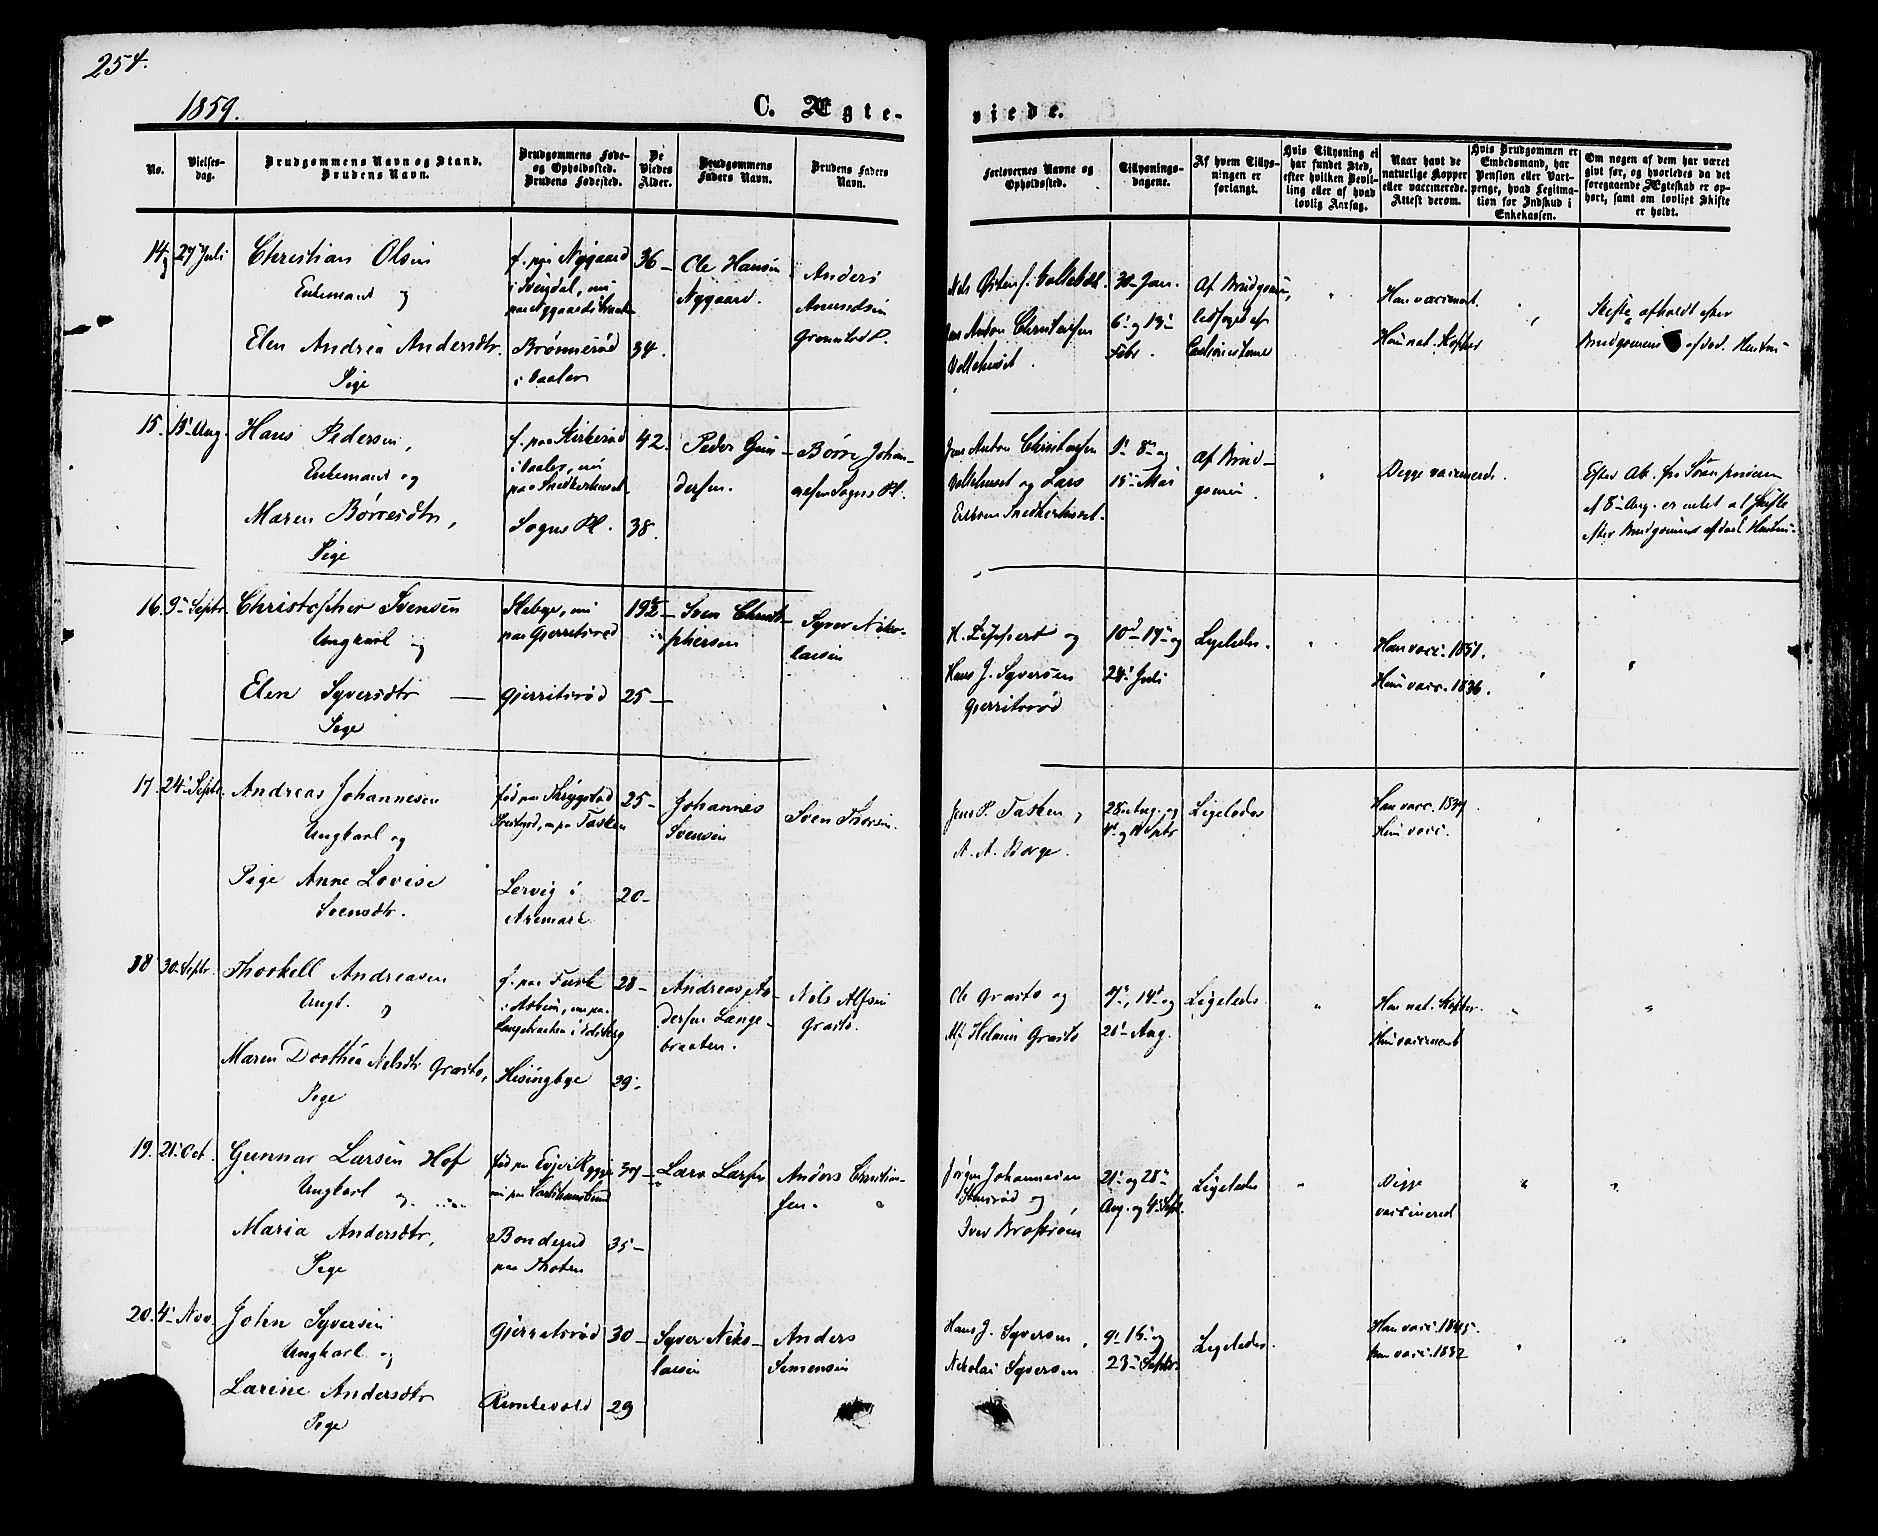 254.
1859.
C. Ægte-
viede.
No.
Vielses-
dag.
Brudgommens Navn og Stand.
Brudens Navn.
Brudgommens Føde-
og Opholdssted.
Brudens Fødested.
De
Viedes
Alder.
Brudgommens
Faders Navn.
Brudens Faders
Navn.
Forlovernes Navne og
Opholdssted.
Tillysnings-
dagene.
Af hvem Tillys-
ningen er
forlangt.
Hvis Tillysning ei
har fundet Sted,
efter hvilken Bevil-
ling eller af hvad
lovlig Aarsag.
Naar havt de
naturlige Kopper
eller vaccinerede.
Attest derom.
Hvis Brudgommen er
Embedsmand, har
Pension eller Vart-
penge, hvad Legitima-
tion for Indskud i
Enkekassen.
Om nogen af dem har været
givt før, og hvorledes da det
foregaaende Ægteskab er op-
hørt, samt om lovligt Skifte
er holdt.
14
27 Juli
Christian Olsen
Enkemand og
Elen Andrea Andersdtr.
Pige
f. paa Nygaard
i
Brønnerød
i Vaaler
36
34.
Ole Hansen
Nygaard.
Anders
Amundsen
30 Jan.
6 og 13
Febr.
Af Brudgomen,
ledsaget af
Han vaccineret.
Hun nat. Kopper
Skifte afholdt efter
Brudgomens afdød. Hustru
15.
15 Aug.
Hans Pedersen,
Enkemand og
Maren Børresdtr,
Pige
f. paa Kirkerød
i Vaaler, nu
paa Snedkerhuset
Sogns Pl.
42.
38.
Peder Gun-
dersen.
Børre Johan-
nesen Sogns Pl.
Jens Anton Christensen
og Lars
Snedkerhuset.
1 8 og
15 Mai
Af Brud-
gomen
Begge vaccinerede.
Efter At. fra Sorenskriveren
af 8 Aug. er intet at Skifte
efter Brudgomens afdøde Hustru.
16.
9 Septr.
Christopher Svensen
Ungkarl og
Elen Syversdtr
Pige
nu
paa Gjerritsrød
Gjerritsrød
19½
25
Sven Christo-
phersen
Syver Niko-
laisen
og
Hans J. Syversen
Gjerritsrød
10 17 og
24 Juli
Ligeledes.
Han vacc. 1851.
Hun vacc. 1836.
17.
24 Septr.
Andreas Johannesen
Ungkarl og
Pige Anne Lovise
Svensdtr.
født paa
Tasken
Lervig i
Aremark
25
20
Johannes
Svensen
Sven Thoresen.
Jens P. Tasken,
A. A. Borge.
28 Aug. og
4 og 11 Septr
Ligeledes
Han vacc. 1837
Hun vacc.
18
30 Septr.
Thorkell Andreasen
Ungk. og
Maren Dorthea Nelsdtr Grasto,
Pige
f. paa
Hesingbye
28
29
Andreas An-
dersen Lange-
braaten.
Nels Alfsen
Grasto.
Ole Grasto og
Helmin Grasto
7, 14 og
21 Aug.
Ligeledes
Han nat. Kopper.
Hun vaccineret
19.
21 Oct.
Gunnar Larsen Hof
Ungkarl og
Maria Andersdtr,
Pige
født paa
nu paa
Bondejord
paa Thoten
37
35
Lars Larsen
Anders Christian-
sen.
Jørgen Johannesen
og
Iver Brostrøm
21 og 28
Aug. og 4 Sept.
Ligeledes
Begge
vaccineret
20.
4 Nov.
John Syversen
Ungkarl og
Larine Andersdtr
Pige
Gjerretsrød
30
29
Syver Niko-
laisen
Anders
Simensen
Hans J. Syversen,
Nikolai Syversen
9 16 og
23 Septr.
Ligeledes.
Han vacc. 1845.
Hun vacc. 1832